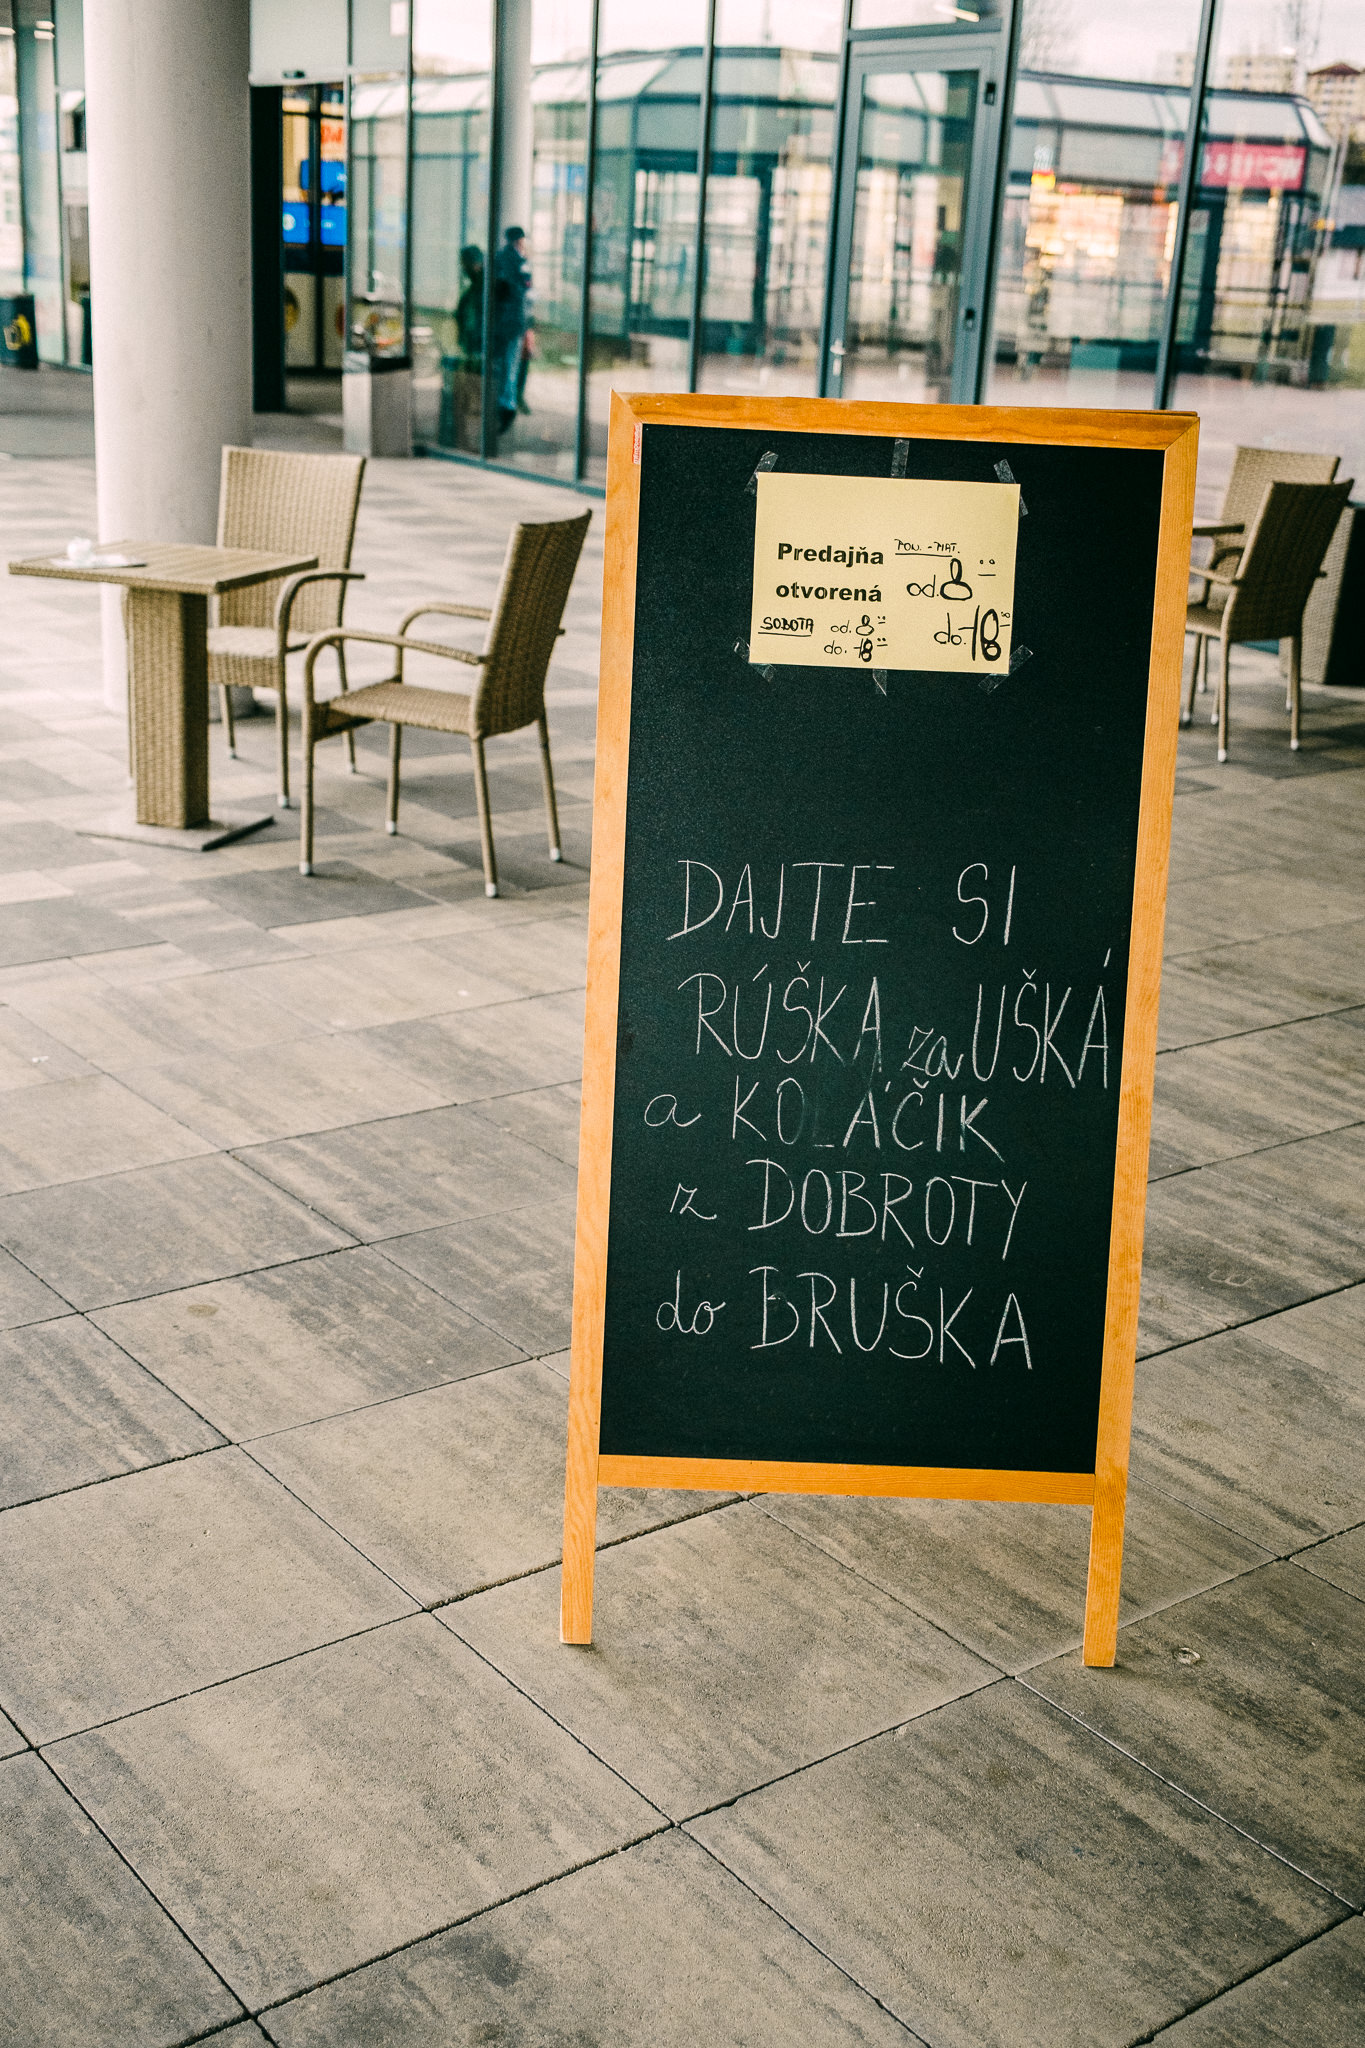 Predajňa
otvorená
PON. - PIAT.
od. 8:00
do. 18:00
SOBOTA od. 8:00
do. 18:00
DAJTE SI
RÚŠKA za UŠKÁ
a KOLÁČIK
z DOBROTY
do BRUŠKA